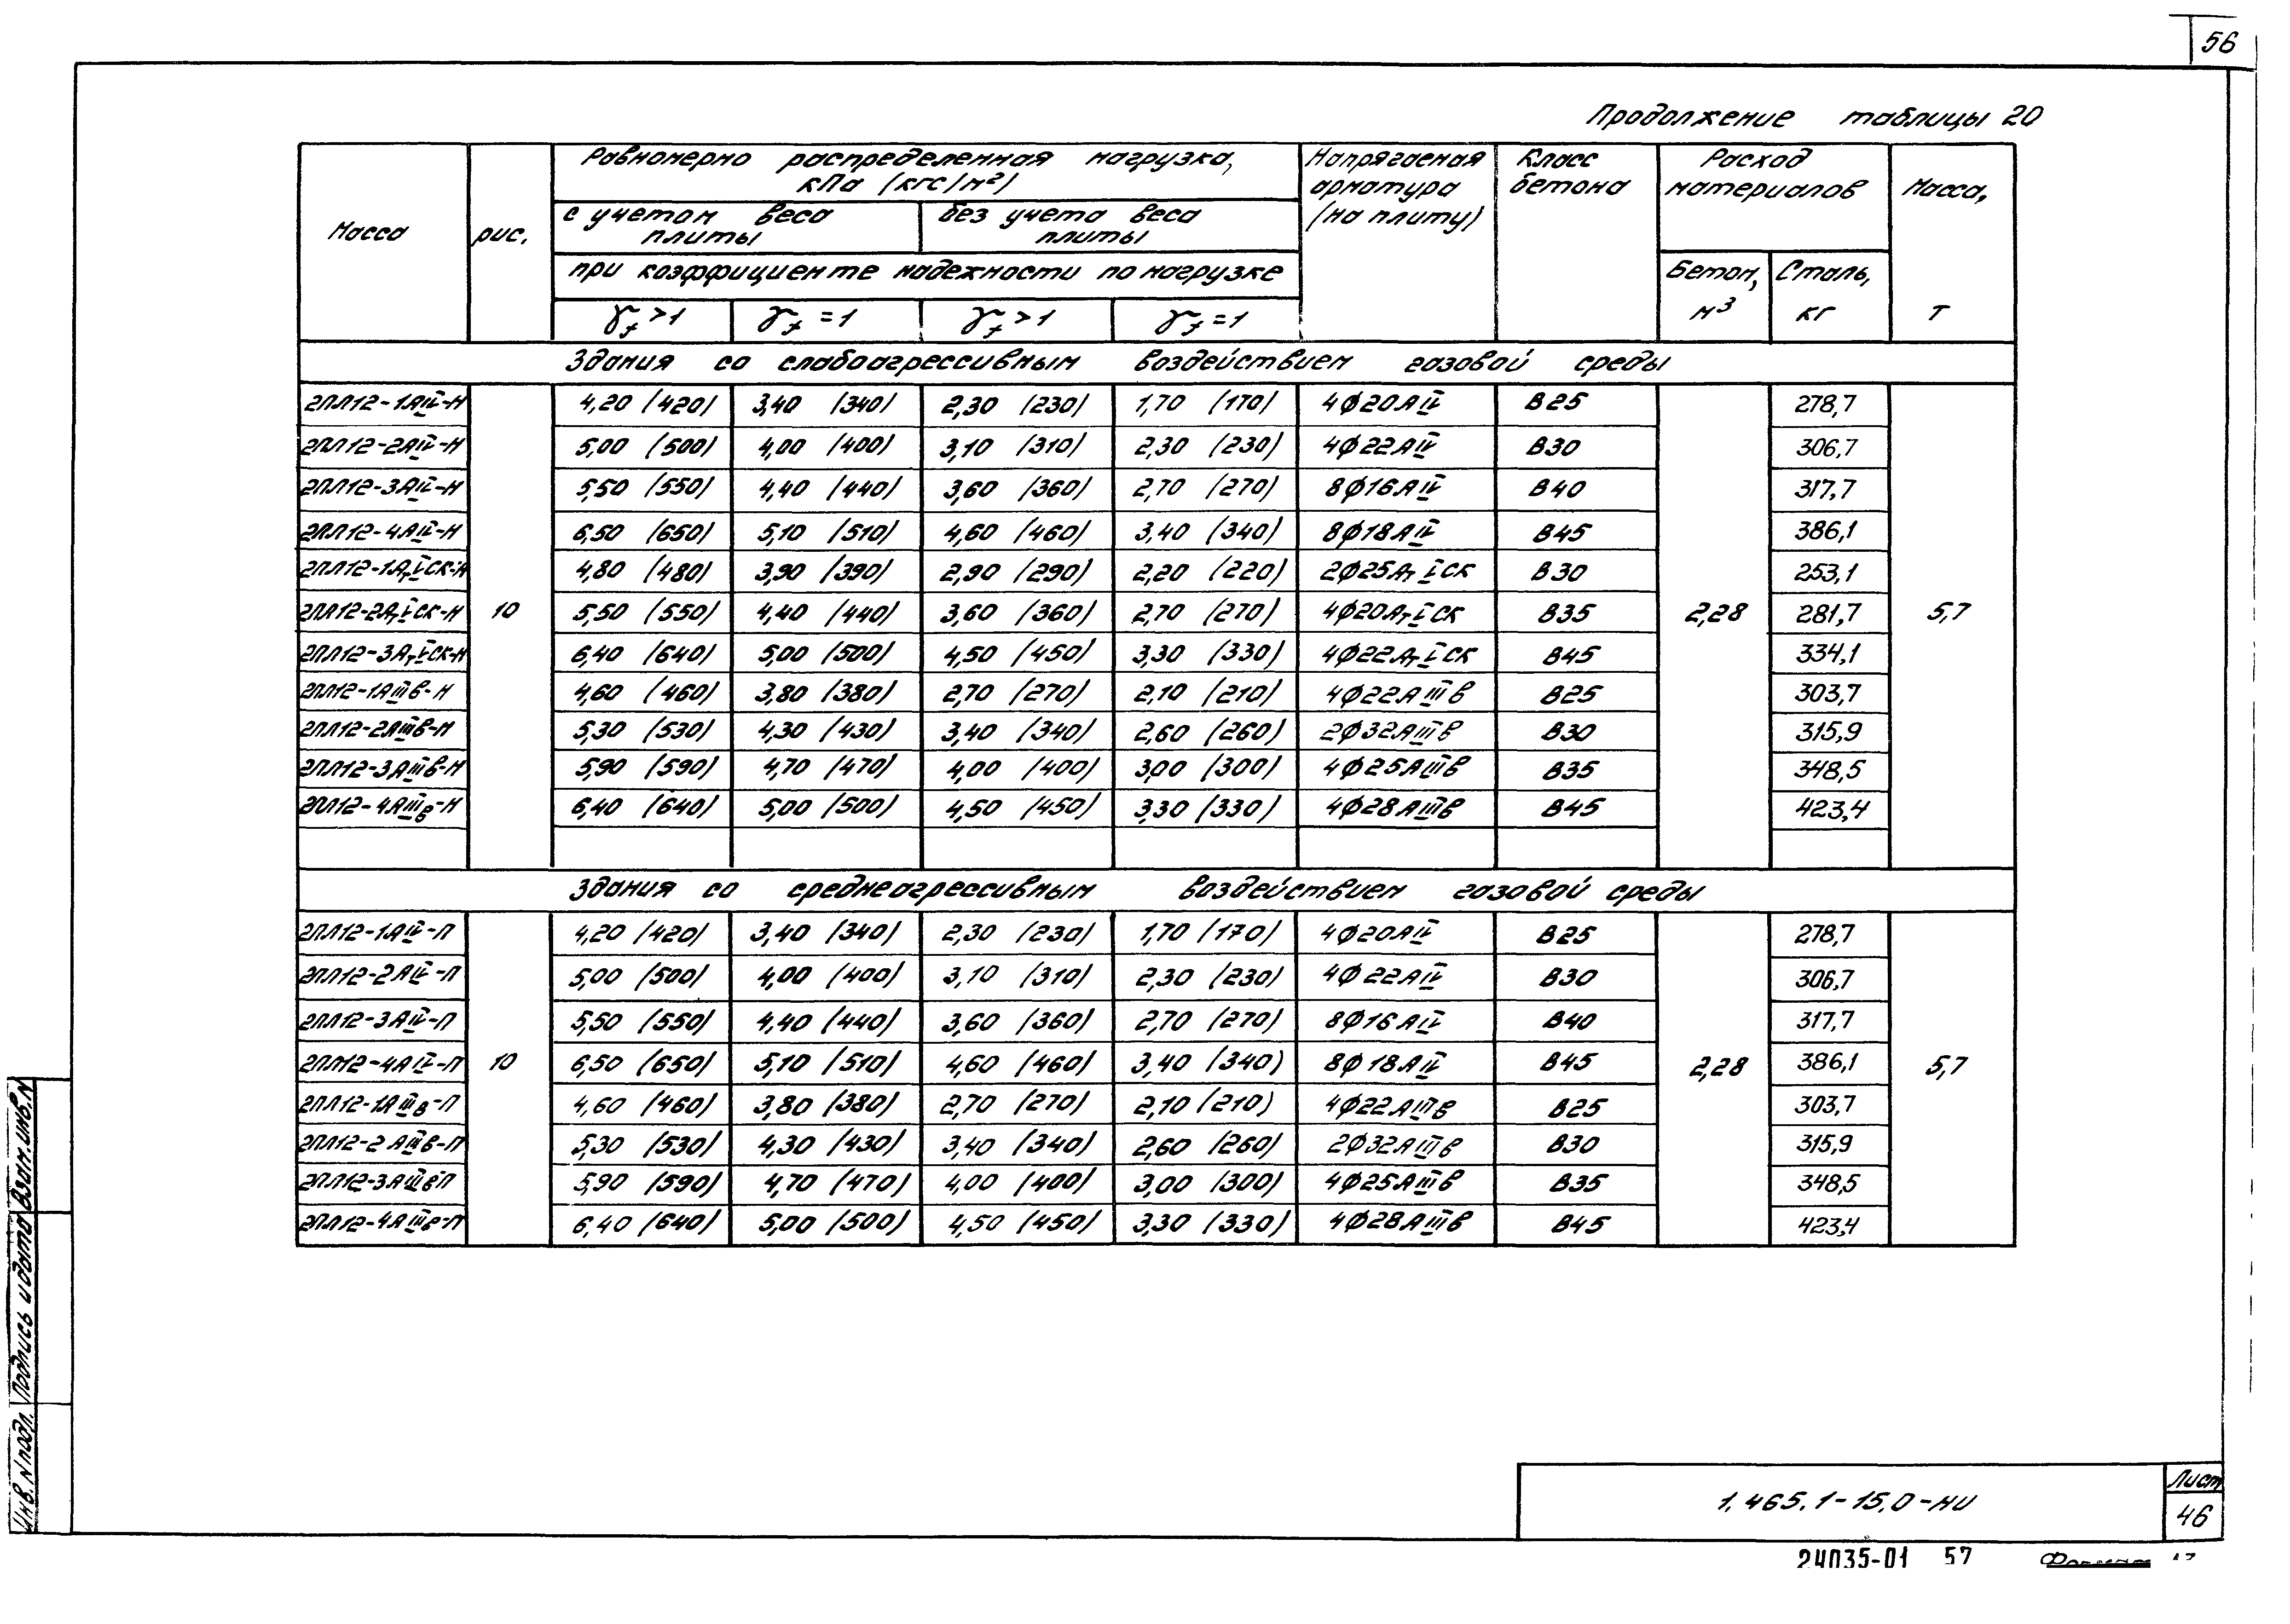 56
Продолжение таблицы 20
Масса
рис.
Равномерно распределенная нагрузка,
кПа (кгс/м²)
с учетом веса
плиты
без учета веса
плиты
при коэффициенте надежности по нагрузке
γf >1 γf =1 γf >1 γf =1
Напрягаемая
арматура
(на плиту)
Класс
бетона
Расход
материалов
Бетон,
м³
Сталь,
кг
Масса,
т
Здания со слабоагрессивным воздействием газовой среды
2ПЛ12-1АIV-Н 4,20 (420) 3,40 (340) 2,30 (230) 1,70 (170) 4Ф20АIV В25 278,7
2ПЛ12-2АIV-Н 5,00 (500) 4,00 (400) 3,10 (310) 2,30 (230) 4Ф22АIV В30 306,7
2ПЛ12-3АIV-Н 5,50 (550) 4,40 (440) 3,60 (360) 2,70 (270) 8Ф16АIV В40 317,7
2ПЛ12-4АIV-Н 6,50 (650) 5,10 (510) 4,60 (460) 3,40 (340) 8Ф18АIV В45 386,1
2ПЛ12-1АтVСК-Н 4,80 (480) 3,90 (390) 2,90 (290) 2,20 (220) 2Ф25АтVСК В30 253,1
2ПЛ12-2АтVСК-Н 10 5,50 (550) 4,40 (440) 3,60 (360) 2,70 (270) 4Ф20АтVСК В35 2,28 281,7 5,7
2ПЛ12-3АтVСК-Н 6,40 (640) 5,00 (500) 4,50 (450) 3,30 (330) 4Ф22АтVСК В45 334,1
2ПЛ12-1АIIIв-Н 4,60 (460) 3,80 (380) 2,70 (270) 2,10 (210) 4Ф22АIIIв В25 303,7
2ПЛ12-2АIIIв-Н 5,30 (530) 4,30 (430) 3,40 (340) 2,60 (260) 2Ф32АIIIв В30 315,9
2ПЛ12-3АIIIв-Н 5,90 (590) 4,70 (470) 4,00 (400) 3,00 (300) 4Ф25АIIIв В35 348,5
2ПЛ12-4АIIIв-Н 6,40 (640) 5,00 (500) 4,50 (450) 3,30 (330) 4Ф28АIIIв В45 423,4
Здания со среднеагрессивным воздействием газовой среды
2ПЛ12-1АIV-П 4,20 (420) 3,40 (340) 2,30 (230) 1,70 (170) 4Ф20АIV В25 278,7
2ПЛ12-2АIV-П 5,00 (500) 4,00 (400) 3,10 (310) 2,30 (230) 4Ф22АIV В30 306,7
2ПЛ12-3АIV-П 5,50 (550) 4,40 (440) 3,60 (360) 2,70 (270) 8Ф16АIV В40 317,7
2ПЛ12-4АIV-П 10 6,50 (650) 5,10 (510) 4,60 (460) 3,40 (340) 8Ф18АIV В45 2,28 386,1 5,7
2ПЛ12-1АIIIв-П 4,60 (460) 3,80 (380) 2,70 (270) 2,10 (210) 4Ф22АIIIв В25 303,7
2ПЛ12-2АIIIв-П 5,30 (530) 4,30 (430) 3,40 (340) 2,60 (260) 2Ф32АIIIв В30 315,9
2ПЛ12-3АIIIв-П 5,90 (590) 4,70 (470) 4,00 (400) 3,00 (300) 4Ф25АIIIв В35 348,5
2ПЛ12-4АIIIв-П 6,40 (640) 5,00 (500) 4,50 (450) 3,30 (330) 4Ф28АIIIв В45 423,4
Инв. N подл. Подпись и дата Взам. инв. N
1.465.1-15.0-НИ
Лист
46
24035-01 57